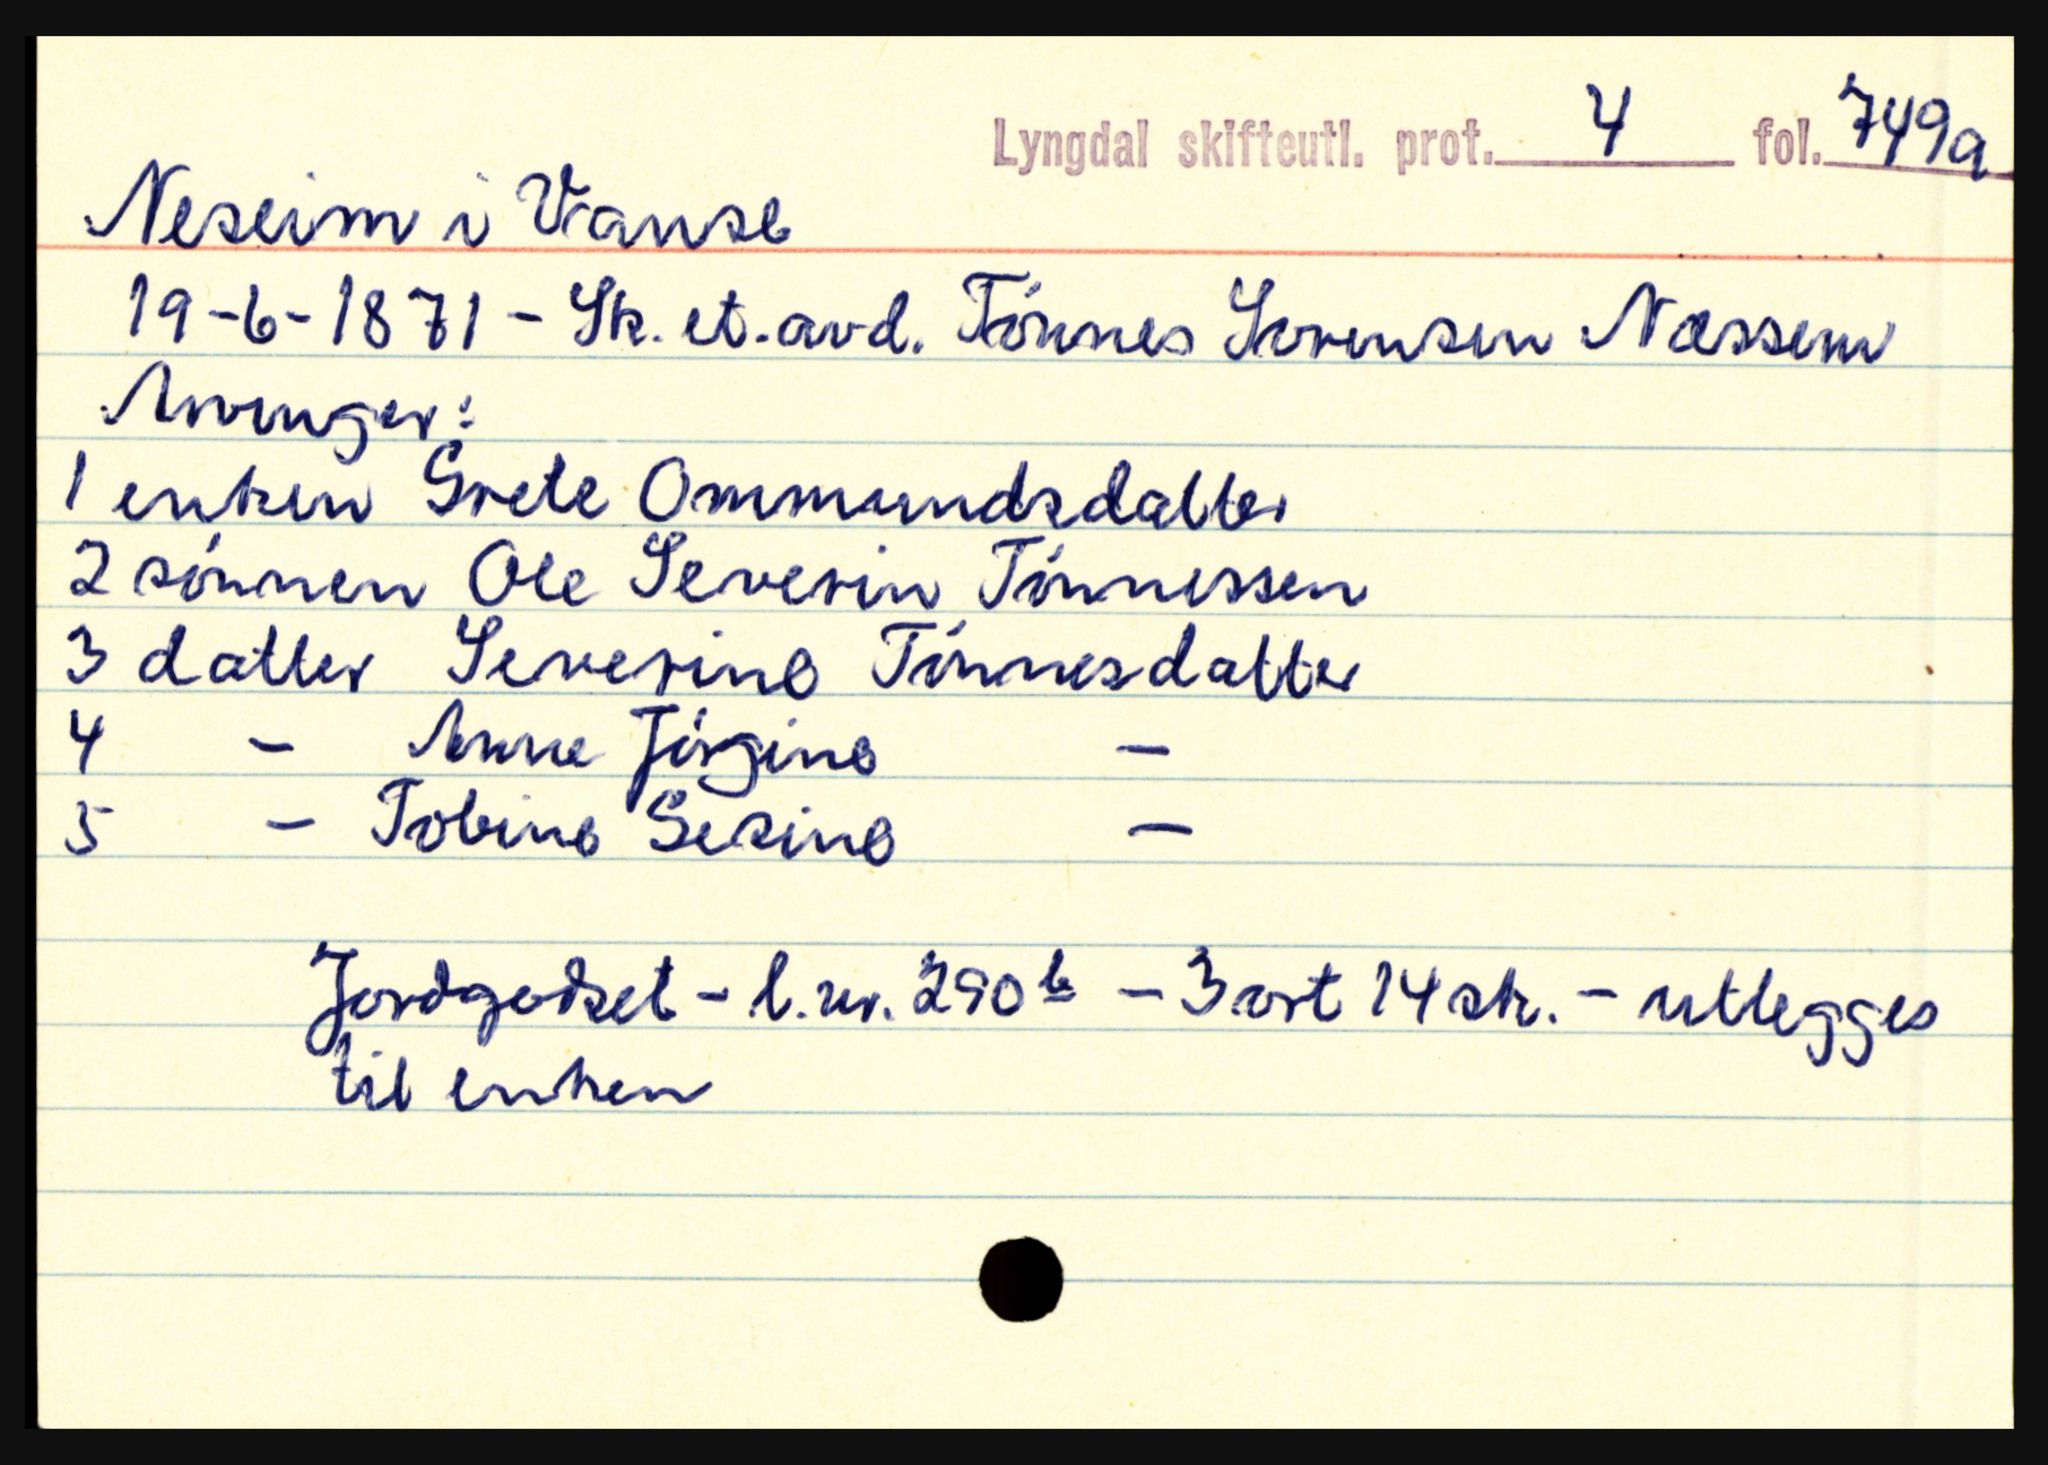 Lyngdal skifteutl. prot. 4 fol. 749a
Neseim i Vanse
19-6-1871 - Sk. et. avd. Tönnes Sørensen Næssem
Arvinger:
1 enken Grete Ommundsdatter
2 sónnen Ole Severin Tónnessen
3 datter Severine Tónnesdatter
4 - Anne Jórgine -
5 - Tobine Gesine -
Jordgodset - l.nr. 290b - 3 ort 14 sk. - utlegges
til enken